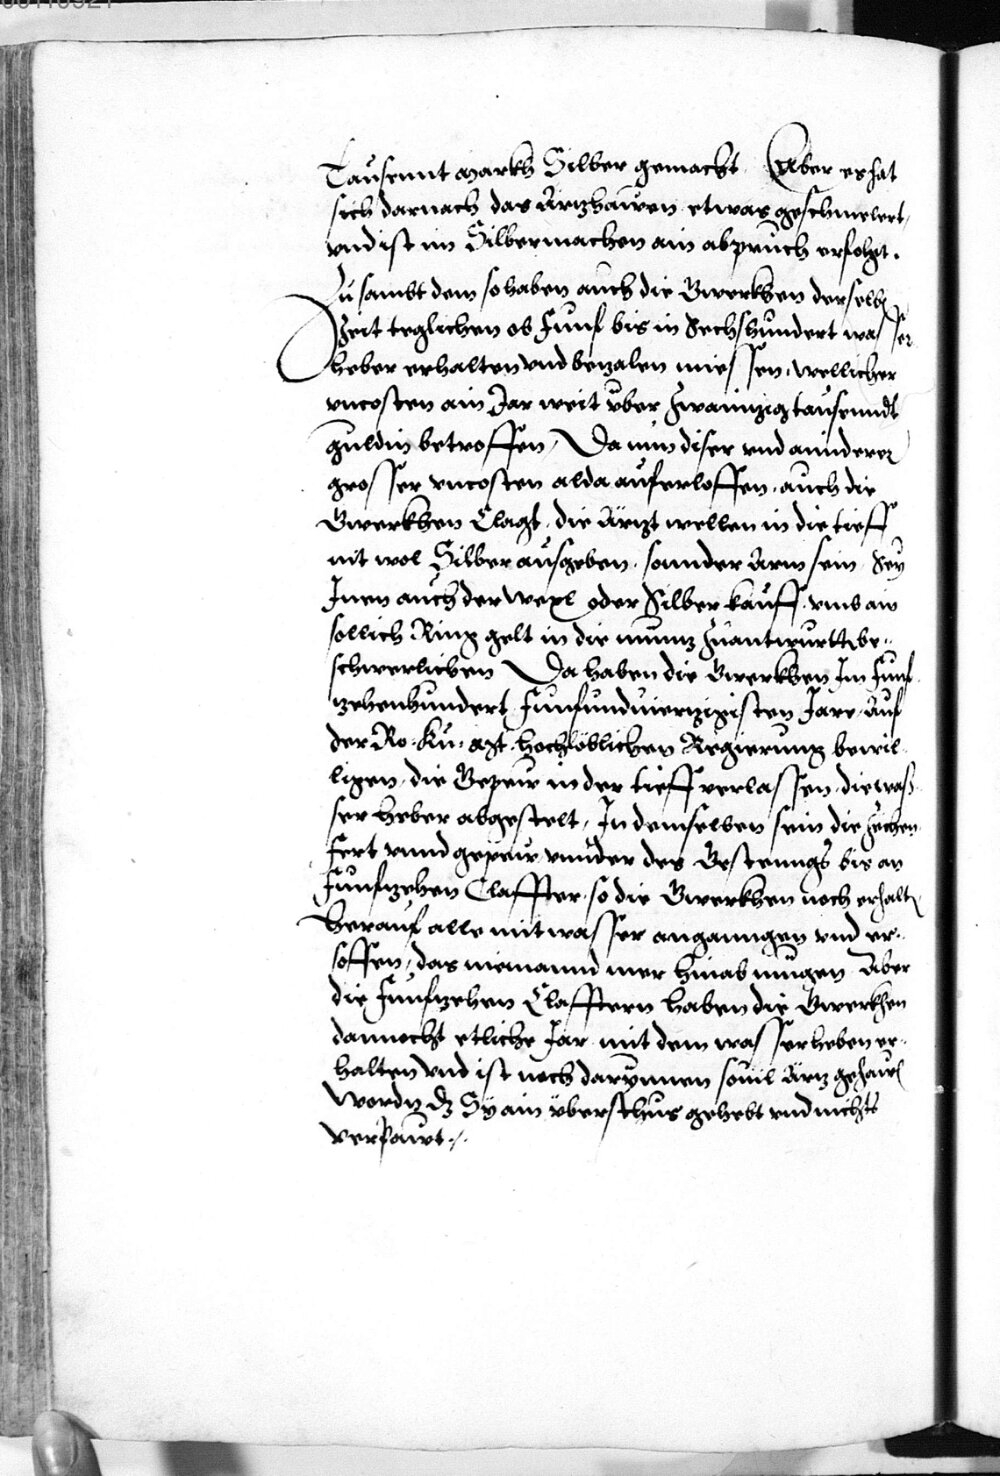 Tausennt markh Silber gemacht. Aber es hat
sich darnach das Ärtzhawen etwas geschmelert,
vnd ist im Silbermachen ain abpruch erfolgt.
Zu sambt dem so haben auch die Gwerkhen derselbn
Zeit teglichen ob Funf bis in Sechshundert wasser
heber erhalten vnd betzalen miessen, wellicher
vncosten ain Jar weit vber Zwaintzigtausenndt
guldin betroffen, Da nun diser vnd annderer
grosser vncosten alda auferloffen, auch die
Gwerkhen Clagt, die Ärtzt wellen in die tieff
nit wol Silber ausgeben, sonnder Arm sein, Sey
Inen auch der wexl oder Silber kauff, vmb ain
sollich Ring gelt in die munntz Zuantwurtt be-
schwerlichen Da haben die Gwerkhen Im Funf
zehenhundert Funfundviertzigisten Jare, Auf
der Rö. Kü. Mt. hochlöblichen Regierung bewil-
ligen, die Gepew in der tieff verlassen, die waß
ser heber abgestelt, In demselben sein die Zechen
fert vnnd gepew vnnder des Erbstollens bis an
Funfzehen Claffter, so die Gwerkhen noch erhaltn
herauf alle mit wasser anganngen vnd er-
soffen, das niemannd mer hinab mugen Aber
die Funfzehen Claffter haben die Gwerkhen
dannocht etliche Jar mit dem wasserheben er-
halten vnd ist noch darynnen souil Ärtz gehawt
Wordn dz Sy ain vberschus gehebt vnd nichts
verpawt.